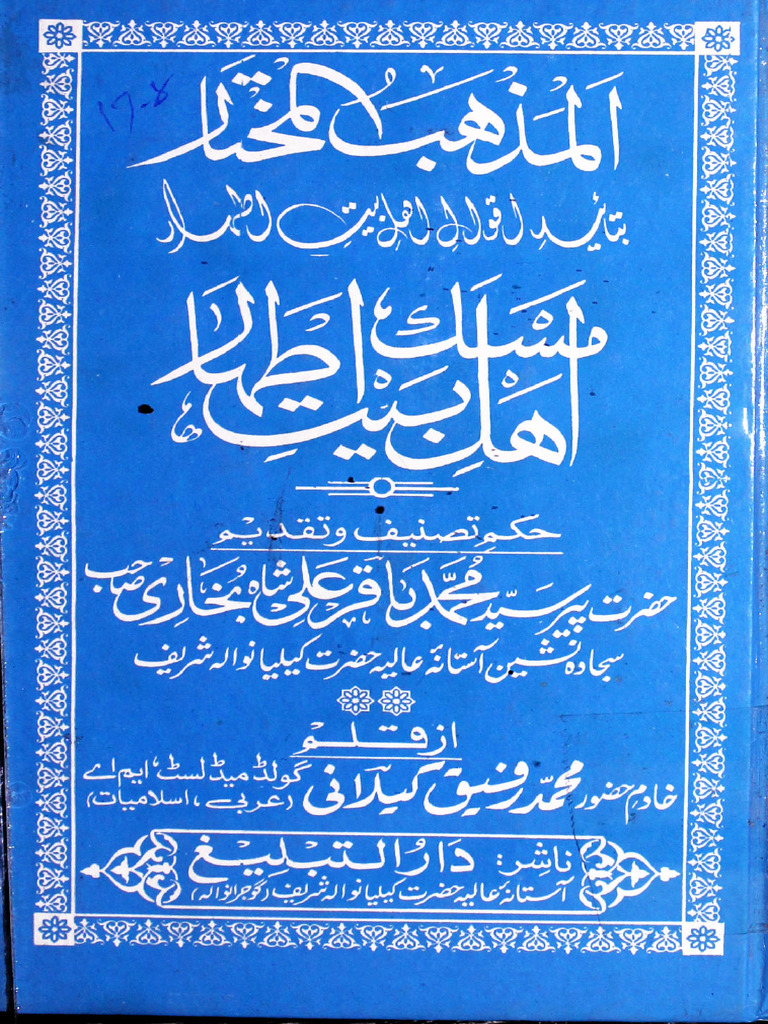 ۱۶-۷
المذہب المختار
بتائید اقوال اہل بیت اطہار
مسلک
اہل بیت اطہار
حکم تصنیف و تقدیم
حضرت پیر سید محمد باقر علی شاہ بخاری صاحب
سجادہ نشین آستانہ عالیہ حضرت کیلیانوالہ شریف
از قلم
خادم حضور محمد رفیق کیلانی گولڈ میڈلسٹ، ایم اے
(عربی، اسلامیات)
ناشر: دار التبلیغ
آستانہ عالیہ حضرت کیلیانوالہ شریف (گوجرانوالہ)